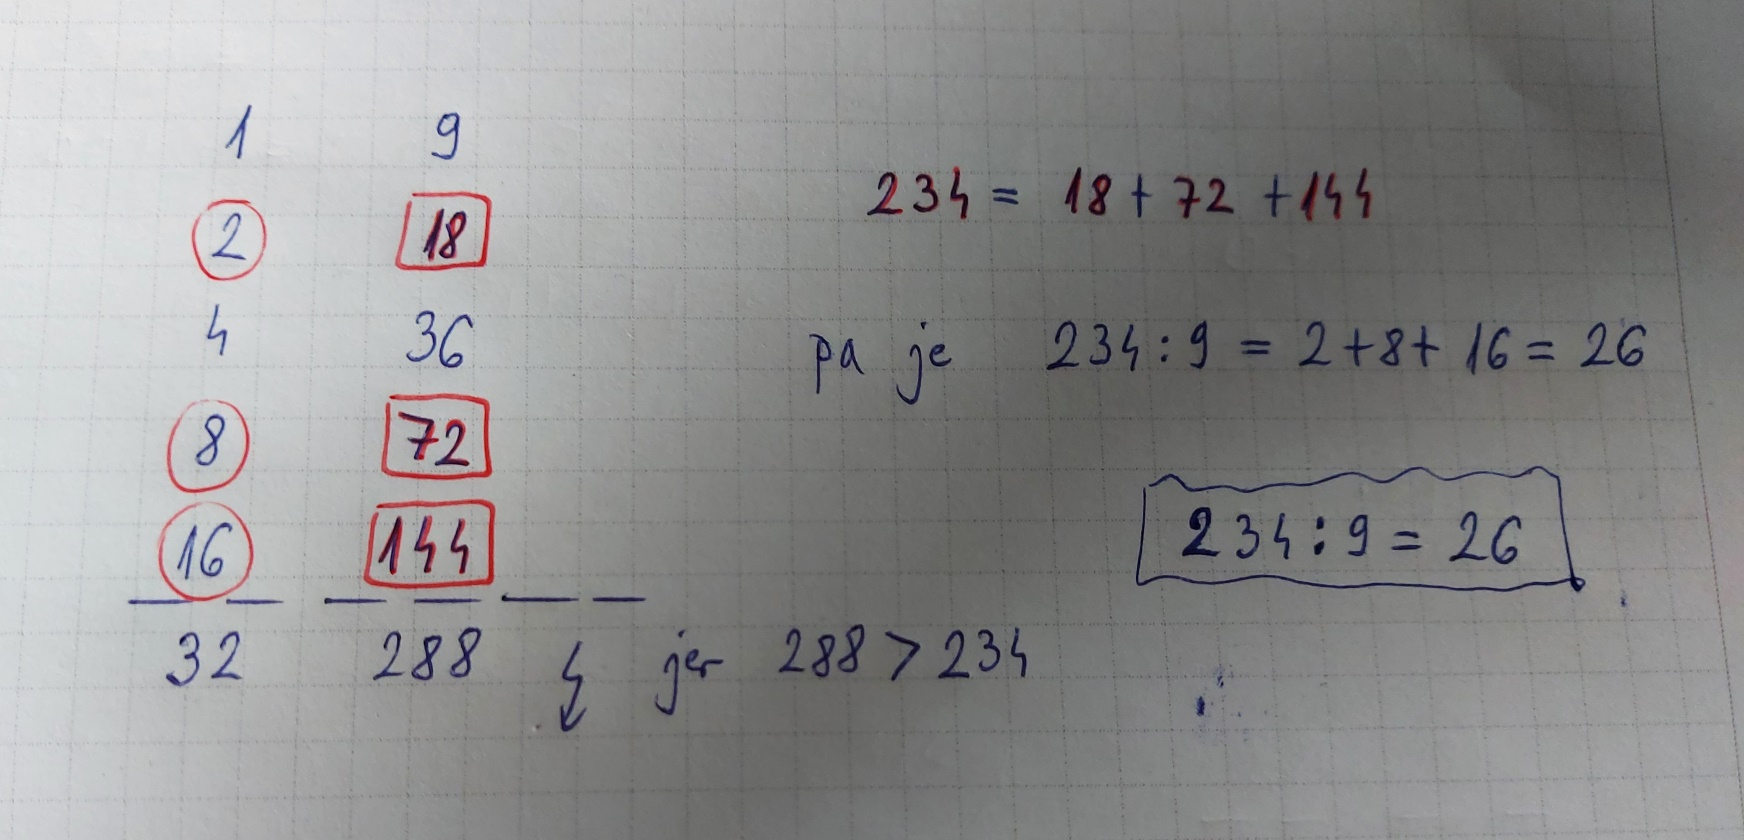 1 9
2 18
4 36
8 72
16 144
32 288 jer 288 > 234
234 = 18 + 72 + 144
pa je 234 : 9 = 2 + 8 + 16 = 26
234 : 9 = 26